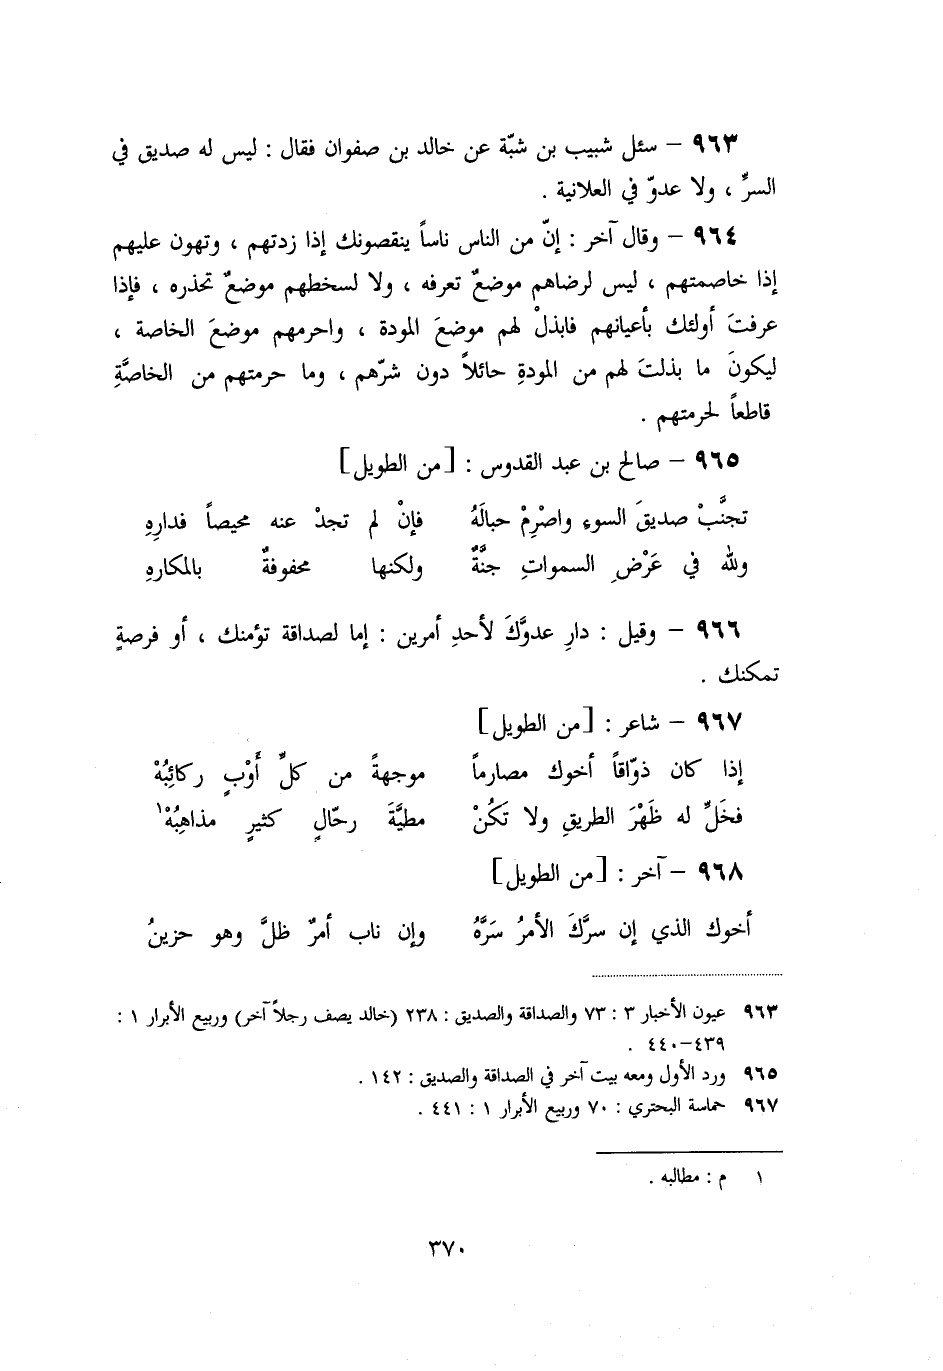 ٩٦٣ – سئل شبيب بن شبّة عن خالد بن صفوان فقال : ليس له صديق في
السرِّ ، ولا عدوّ في العلانية .
٩٦٤ – وقال آخر : إنّ من الناس ناساً ينقصونك إذا زدتهم ، وتهون عليهم
إذا خاصمتهم ، ليس لرضاهم موضعٌ تعرفه ، ولا لسخطهم موضعٌ تحذره ، فإذا
عرفتَ أولئك بأعيانهم فابذلْ لهم موضعَ المودة ، واحرمهم موضعَ الخاصة ،
ليكونَ ما بذلتَ لهم من المودةِ حائلاً دون شرّهم ، وما حرمتهم من الخاصَّةِ
قاطعاً لحرمتهم .
٩٦٥ – صالح بن عبد القدوس : [من الطويل]
تجنَّبْ صديقَ السوءِ واصْرِمْ حبالَهُ فإنْ لم تجدْ عنه محيصاً فدارِهِ
ولله في عَرْضِ السمواتِ جنَّةٌ ولكنها محفوفةٌ بالمكارهِ
٩٦٦ – وقيل : دارِ عدوَّكَ لأحدِ أمرين : إما لصداقة تؤمنك ، أو فرصةٍ
تمكنك .
٩٦٧ – شاعر : [من الطويل]
إذا كان ذوّاقاً أخوك مصارماً موجهةً من كلِّ أَوْبٍ ركائِبُهْ
فخَلِّ له ظَهْرَ الطريقِ ولا تَكُنْ مطيَّةَ رحّالٍ كثيرٍ مذاهِبُهْ١
٩٦٨ – آخر : [من الطويل]
أخوك الذي إن سرَّكَ الأمرُ سَرَّهُ وإن ناب أمرٌ ظلَّ وهو حزينُ
٩٦٣ عيون الأخبار ٣ : ٧٣ والصداقة والصديق : ٢٣٨ (خالد يصف رجلاً آخر) وربيع الأبرار ١ :
٤٣٩–٤٤٠ .
٩٦٥ ورد الأول ومعه بيت آخر في الصداقة والصديق : ١٤٢ .
٩٦٧ حماسة البحتري : ٧٠ وربيع الأبرار ١ : ٤٤١ .
١ م : مطالبه .
٣٧٠